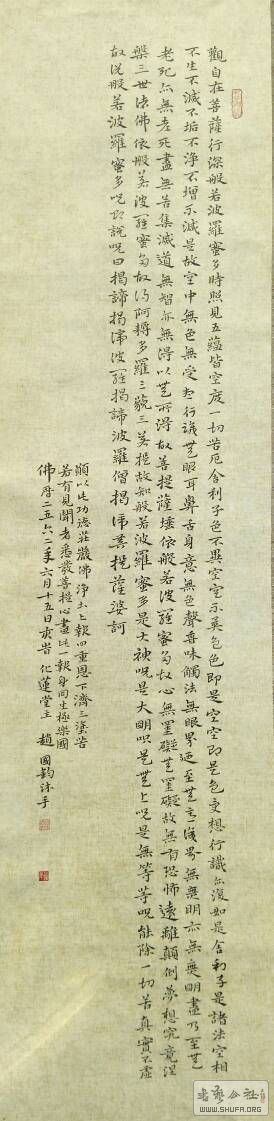 觀自在菩薩行深般若波羅蜜多時照見五蘊皆空度一切苦厄舍利子色不異空空不異色色即是空空即是色受想行識亦復如是舍利子是諸法空相
不生不滅不垢不淨不增不減是故空中無色無受想行識無眼耳鼻舌身意無色聲香味觸法無眼界乃至無意識界無無明亦無無明盡乃至無
老死亦無老死盡無苦集滅道無智亦無得以無所得故菩提薩埵依般若波羅蜜多故心無罣礙無罣礙故無有恐怖遠離顛倒夢想究竟涅
槃三世諸佛依般若波羅蜜多故得阿耨多羅三藐三菩提故知般若波羅蜜多是大神咒是大明咒是無上咒是無等等咒能除一切苦真實不虛
故說般若波羅蜜多咒即說咒曰揭諦揭諦波羅揭諦波羅僧揭諦菩提薩婆訶
願以此功德莊嚴佛淨土上報四重恩下濟三塗苦
若有見聞者悉發菩提心盡此一報身同生極樂國
佛曆二五六二年六月十五日 化蓮堂主 趙國鈞沐手
书艺公社
WWW.SHUFA.ORG